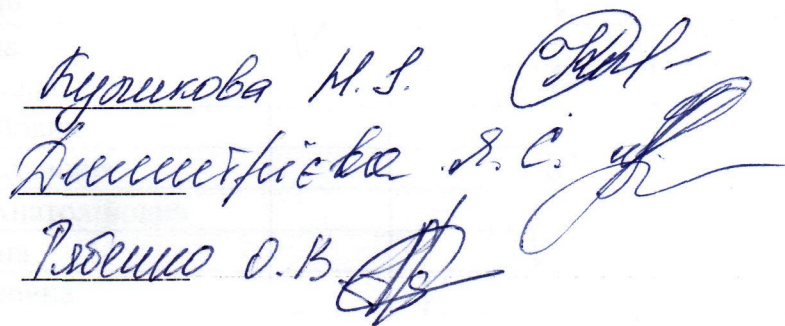 Кушкова Н.Я.
Дмитрієва Я.С.
Рябенко О.В.